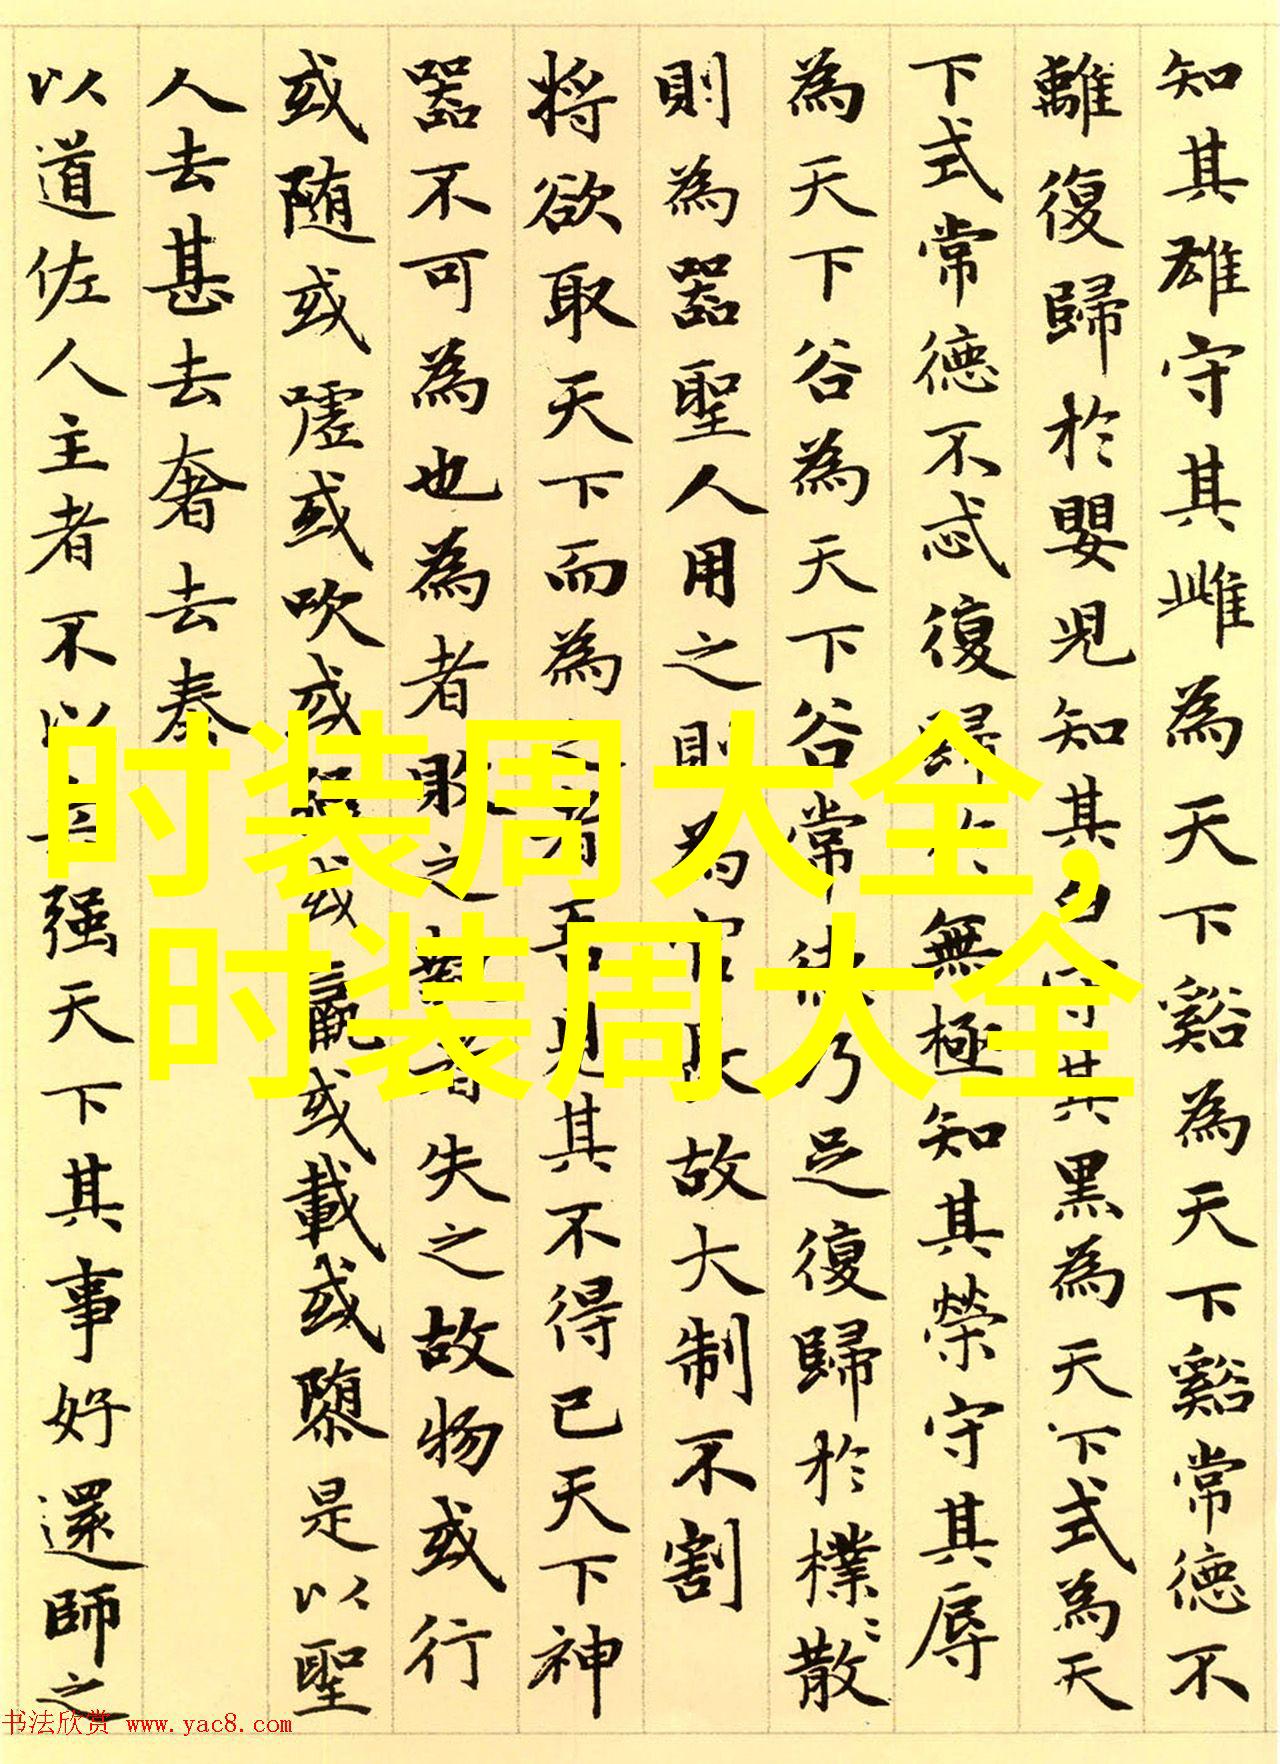 知其雄守其雌為天下谿為天下谿常德不
離復歸於嬰児知其白守其黒為天下式為天
下式常德不忒復歸於無極知其榮守其辱
為天下谷為天下谷常德乃足復歸於樸〻散
則為器聖人用之則為官長故大制不割
将欲取天下而為之者吾見其不得已天下神
器不可為也為者敗之執者失之故物或行
或随或嘘或吹或强或羸或載或隳是以聖
人去甚去奢去泰
以道佐人主者不以兵强天下其事好還師之
时装周大全,
时装周大全
书法欣赏 www.yac8.com